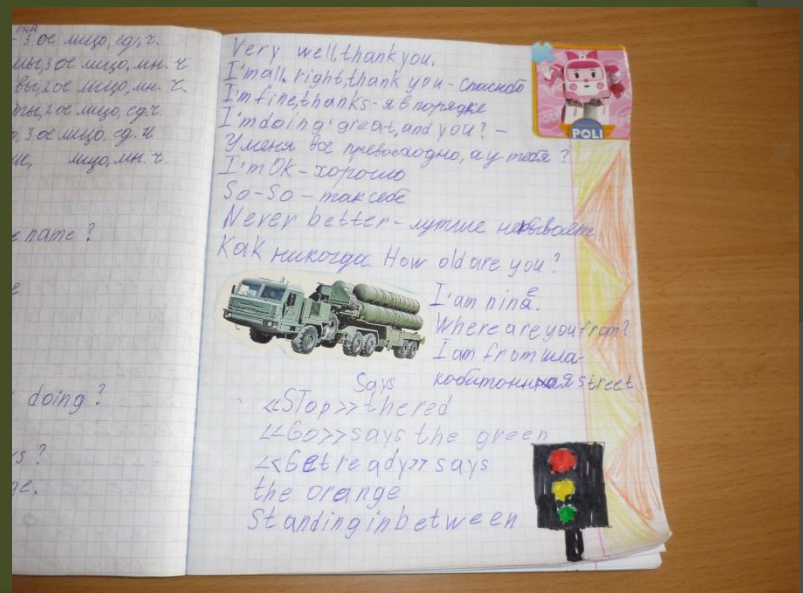 она
- 3 ое лицо, ед. ч.
мы, 3 ое лицо, мн. ч
вы, 2 ое лицо, мн. ч.
ты, 2 ое лицо, ед. ч.
3 ое лицо. ед. ч
лицо, мн. ч.
name ?
doing ?
Very well, thank you.
I'm all. right, thank you - спасибо
I'm fine, thanks - я в порядке
I'm doing great, and you? -
У меня все превосходно, а у тебя ?
I'm OK - хорошо
So - So - так себе
Never better - лучше не бывает
Как никогда. How old are you ?
POLI
I'am nine.
Where are you from?
I am from шла-
кобитонная street
Says
«STop» the red
«Go» says the green
«Get ready» says
the orange
Standing in between